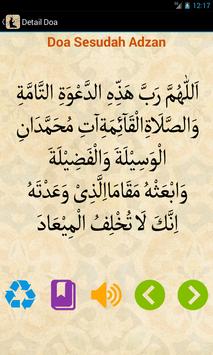 12:17
Detail Doa
Doa Sesudah Adzan
اَللّٰهُمَّ رَبَّ هٰذِهِ الدَّعْوَةِ التَّامَّةِ
وَالصَّلَاةِ الْقَائِمَةِ آتِ مُحَمَّدَانِ
الْوَسِيْلَةَ وَالْفَضِيْلَةَ
وَابْعَثْهُ مَقَامًاالَّذِىْ وَعَدْتَهُ
اِنَّكَ لَا تُخْلِفُ الْمِيْعَادَ